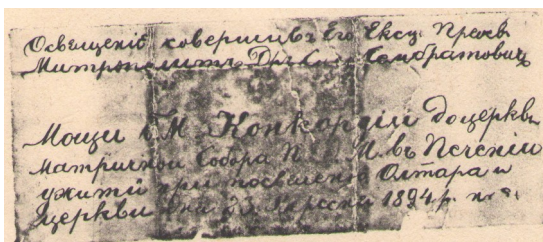 Освященіє совершивъ Его Ексц. Преосв
Митрополитъ Др. Сембратович
Мощи б. М. Конкордіи до церкви
матричной Собора П. Д. М. въ Печеніи
ужитіи при посвященю Олтара и
церкви дня 23. Вересня 1894 р.